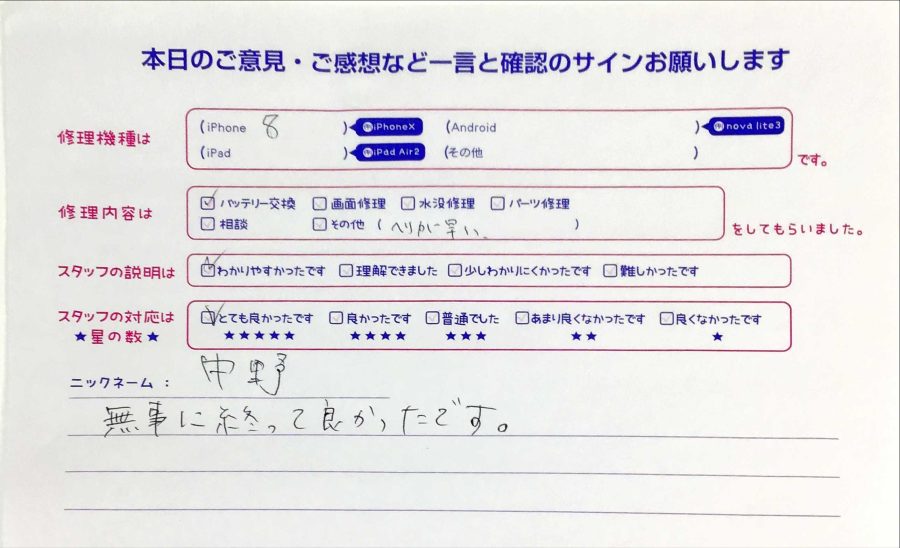 本日のご意見・ご感想など一言と確認のサインお願いします
修理機種は
(iPhone 8 ) 例iPhoneX (Android ) 例nova lite3
(iPad ) 例iPad Air2 (その他 ) です。
修理内容は
バッテリー交換 画面修理 水没修理 パーツ修理
相談 その他 ( へりがに早い、 ) をしてもらいました。
スタッフの説明は わかりやすかったです 理解できました 少しわかりにくかったです 難しかったです
スタッフの対応は とても良かったです 良かったです 普通でした あまり良くなかったです 良くなかったです
★星の数★ ★★★★★ ★★★★ ★★★ ★★ ★
ニックネーム： 中野
無事に終って良かったです。